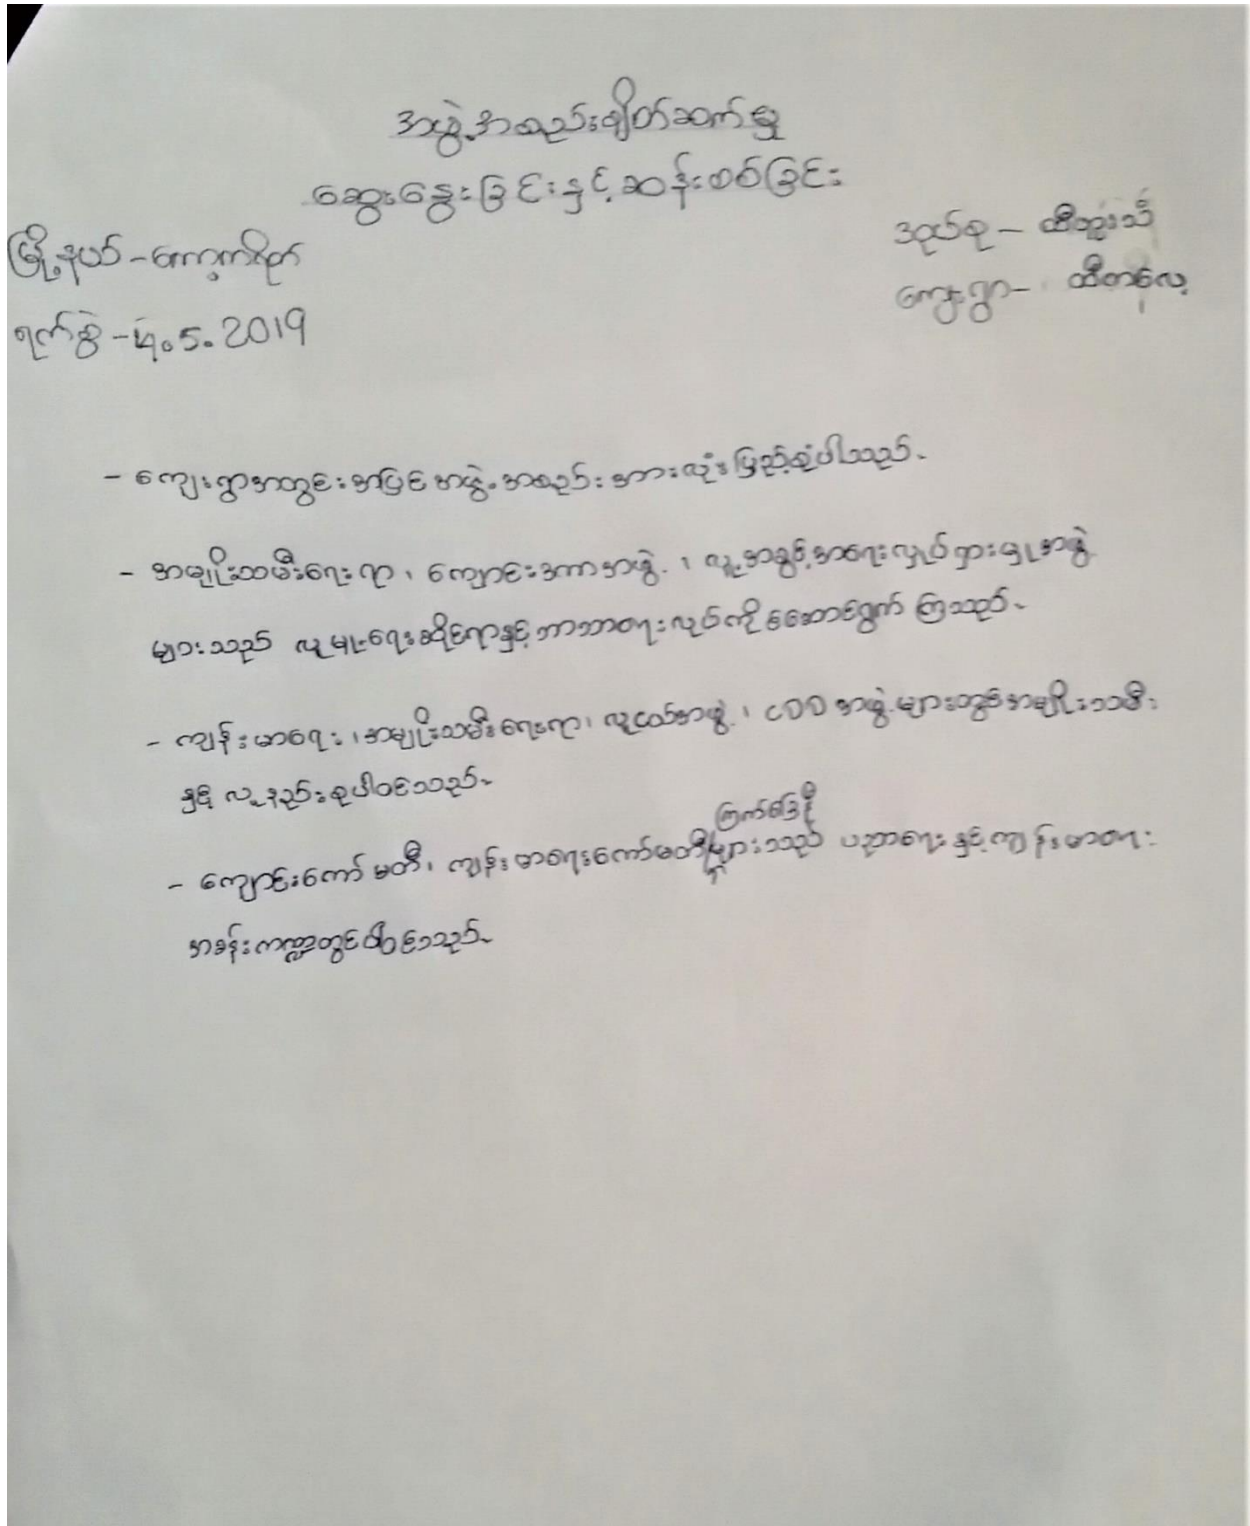 အဖွဲ့အစည်းချိတ်ဆက်မှု
ဆွေးနွေးခြင်းနှင့်ဆန်းစစ်ခြင်း
မြို့နယ် - ကော့ကရိတ်
အုပ်စု - ထီဘူးသံ
ကျေးရွာ - ထီတလေ့
ရက်စွဲ - 4.5.2019
- ကျေးရွာအတွင်းအပြင်အဖွဲ့အစည်းအားလုံးပြည့်စုံပါသည်။
- အမျိုးသမီးရေးရာ၊ ကျောင်းအကာအဖွဲ့၊ လူ့အခွင့်အရေးလှုပ်ရှားမှုအဖွဲ့
များသည် လူမှုရေးဆိုင်ရာနှင့်ဘာသာရေးလုပ်ကိုဆောင်ရွက်ကြသည်။
- ကျန်းမာရေး၊ အမျိုးသမီးရေးရာ၊ လူငယ်အဖွဲ့၊ CDD အဖွဲ့များတွင်အမျိုးသမီး
နှင့် လူနည်းစုပါဝင်သည်။
- ကျောင်းကော်မတီ၊ ကျန်းမာရေးကော်မတီကြက်ခြေနီများသည် ပညာရေးနှင့်ကျန်းမာရေး
အခန်းကဏ္ဍတွင်ပါဝင်သည်။